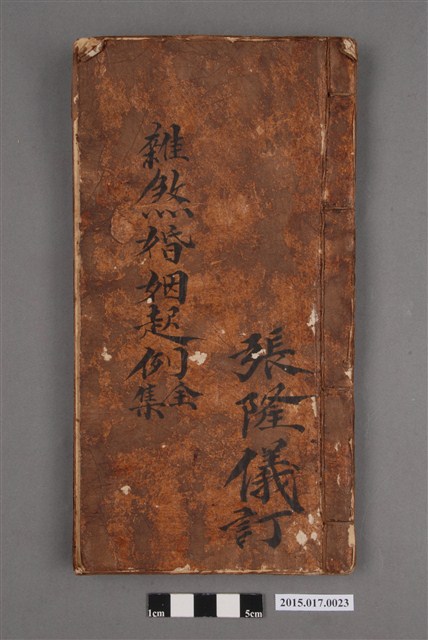 張隆儀訂
雜煞婚姻起例全集
1cm
5cm
2015.017.0023